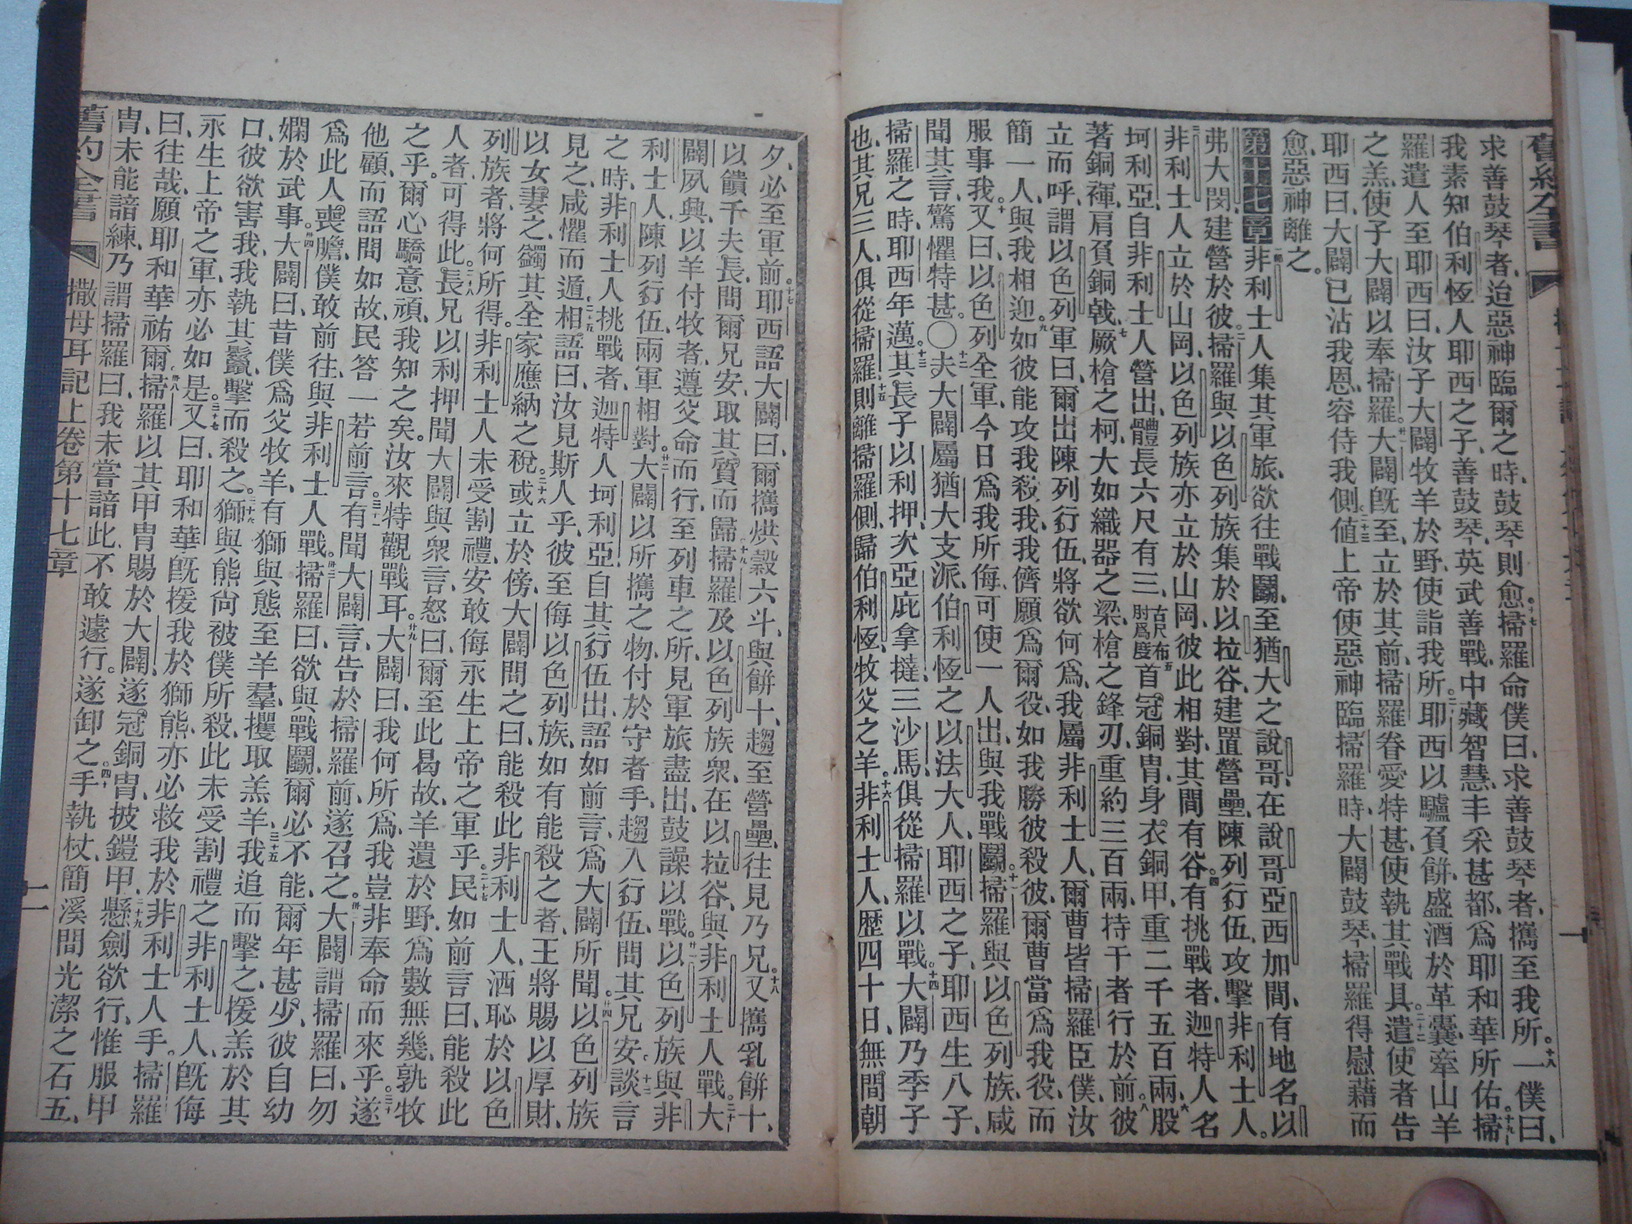 求善鼓琴者、迨惡神臨爾之時、鼓琴則愈、十七掃羅命僕曰、求善鼓琴者、攜至我所。十八一僕曰、
我素知伯利恆人耶西之子、善鼓琴、英武善戰、中藏智慧、丰采甚都、爲耶和華所佑、十九掃
羅遣人至耶西曰、汝子大闢牧羊於野、使詣我所、二十耶西以驢負餅、盛酒於革囊、牽山羊
之羔、使子大闢以奉掃羅、大闢旣至、立於其前、掃羅眷愛特甚、使執其戰具。遣使者告
耶西曰、大闢已沾我恩、容侍我側、二十三値上帝使惡神臨掃羅時、大闢鼓琴、掃羅得慰藉而
愈、惡神離之。
第十七章 非利士人集其軍旅、欲往戰鬬、至猶大之說哥、在說哥亞西加間、有地名以
弗大閔、建營於彼、掃羅與以色列族集於以拉谷、建置營壘、陳列行伍、攻擊非利士人。
非利士人立於山岡、以色列族亦立於山岡、彼此相對、其間有谷、四有挑戰者、迦特人名
坷利亞、自非利士人營出、體長六尺有三、古尺布肘爲度五首冠銅胄、身衣銅甲、重二千五百兩、六股
著銅褌、肩負銅戟、七厥槍之柯、大如織器之梁、槍之鋒刃、重約三百兩、持干者行於前、八彼
立而呼、謂以色列軍曰、爾出陳列行伍、將欲何爲、我屬非利士人、爾曹皆掃羅臣僕、汝
簡一人、與我相迎、九如彼能攻我殺我、我儕願爲爾役、如我勝彼殺彼、爾曹當爲我役、而
服事我、十又曰、以色列全軍、今日爲我所侮、可使一人出、與我戰鬬、十一掃羅與以色列族、咸
聞其言、驚懼特甚。〇十二夫大闢屬猶大支派、伯利恆之以法大人、耶西之子、耶西生八子、
掃羅之時、耶西年邁、十三其長子以利押、次亞庇拿撻、三沙馬、俱從掃羅以戰、十四大闢乃季子
也、其兄三人、俱從掃羅、十五則離掃羅側、歸伯利恆、牧父之羊、十六非利士人、歷四十日、無間朝
夕、必至軍前。十七耶西語大闢曰、爾攜烘穀六斗、與餅十、趨至營壘、往見乃兄、十八又攜乳餅十、
以饋千夫長、問爾兄安、取其質而歸、十九掃羅及以色列族衆、在以拉谷、與非利士人戰、二十大
闢夙興、以羊付牧者、遵父命而行、至列車之所、見軍旅盡出、鼓譟以戰、廿一以色列族與非
利士人、陳列行伍、兩軍相對、廿二大闢以所攜之物、付於守者手、趨入行伍、問其兄安、談言
之時、非利士人挑戰者、迦特人坷利亞、自其行伍出、語如前言、爲大闢所聞、廿四以色列族
見之咸懼而遁、二十五相語曰、汝見斯人乎、彼至侮以色列族、如有能殺之者、王將賜以厚財、
以女妻之、蠲其全家應納之稅、二十六或立於傍、大闢問之曰、能殺此非利士人、洒恥於以色
列族者、將何所得、非利士人未受割禮、安敢侮永生上帝之軍乎、二十七民如前言曰、能殺此
人者、可得此、二十八長兄以利押、聞大闢與衆言、怒曰、爾至此曷故、羊遺於野、爲數無幾、孰牧
之乎、爾心驕意頑、我知之矣、汝來特觀戰耳、廿九大闢曰、我何所爲、我豈非奉命而來乎、三十遂
他顧、而語間如故、民答一若前言、三十一有聞大闢言、告於掃羅前、遂召之、卅二大闢謂掃羅曰、勿
爲此人喪膽、僕敢前往、與非利士人戰、卅三掃羅曰、欲與戰鬬、爾必不能、爾年甚少、彼自幼
嫻於武事、卅四大闢曰、昔僕爲父牧羊、有獅與熊至羊羣、攫取羔羊、三十五我追而擊之、援羔於其
口、彼欲害我、我執其鬚、擊而殺之、三十六獅與熊尙被僕所殺、此未受割禮之非利士人、旣侮
永生上帝之軍、亦必如是、三十七又曰、耶和華旣援我於獅熊、亦必救我於非利士人手。掃羅
曰、往哉、願耶和華祐爾、卅八掃羅以其甲胄賜於大闢、遂冠銅胄、披鎧甲、三十九懸劍欲行、惟服甲
胄、未能諳練、乃謂掃羅曰、我未嘗諳此、不敢遽行、遂卸之、四十手執杖、簡溪間光潔之石五、
舊約全書 撒母耳記上卷 第十七章 十一